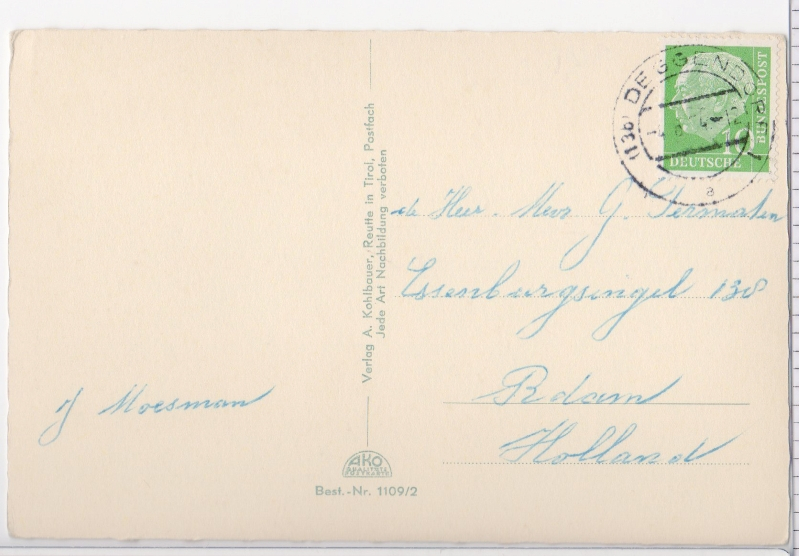 Moesman
Verlag A. Kohlbauer, Reutte in Tirol, Postfach
Jede Art Nachbildung verboten
AKO
Best.-Nr. 1109/2
(13b) DEGGENDORF
a
10
DEUTSCHE
BUNDESPOST
de Heer. Mevr G. Termaten
Essenburgsingel 138
Rdam
Holland